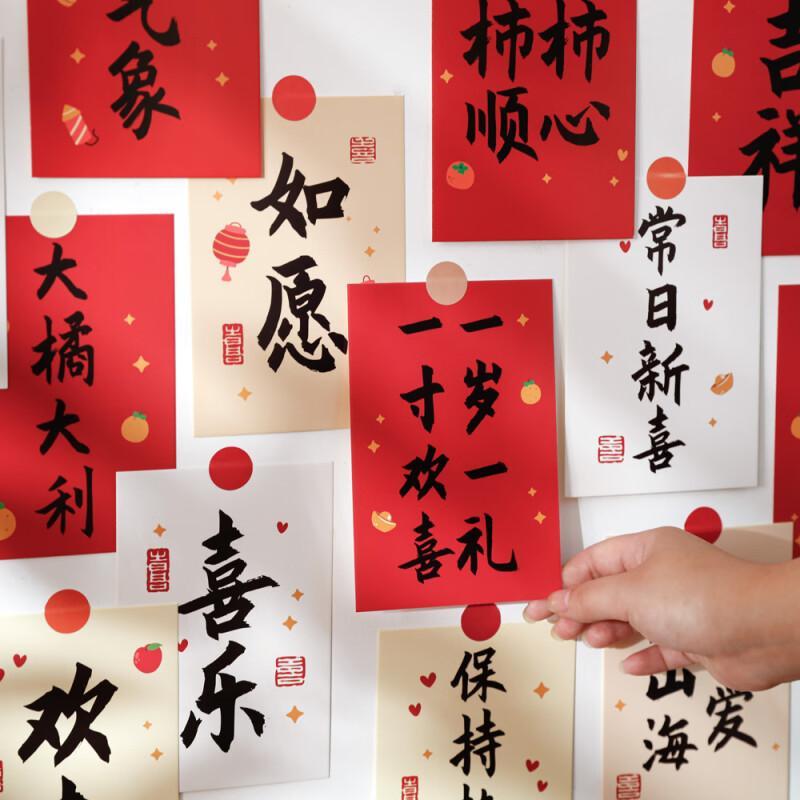 气象
柿柿
顺心
吉祥
如愿
常日新喜
大橘大利
一岁一礼
一寸欢喜
喜乐
欢
保持
爱
山海